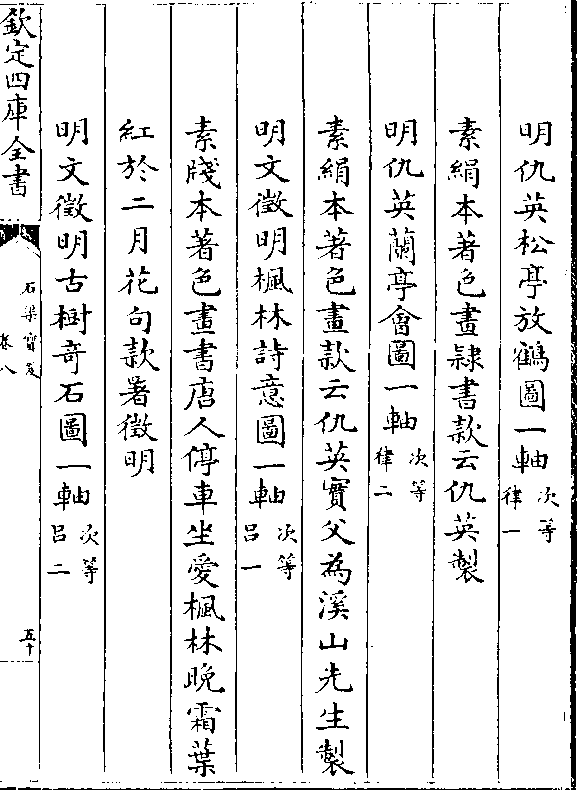 明仇英松亭放鶴圖一軸次等律一
素絹本著色畫隸書款云仇英製
明仇英蘭亭會圖一軸次等律二
素絹本著色畫款云仇英實父為溪山先生製
明文徵明楓林詩意圖一軸次等呂一
素牋本著色畫書唐人停車坐愛楓林晚霜葉
紅於二月花句款署徵明
明文徵明古樹奇石圖一軸次等呂二
欽定四庫全書
石渠寶笈
卷八
五十